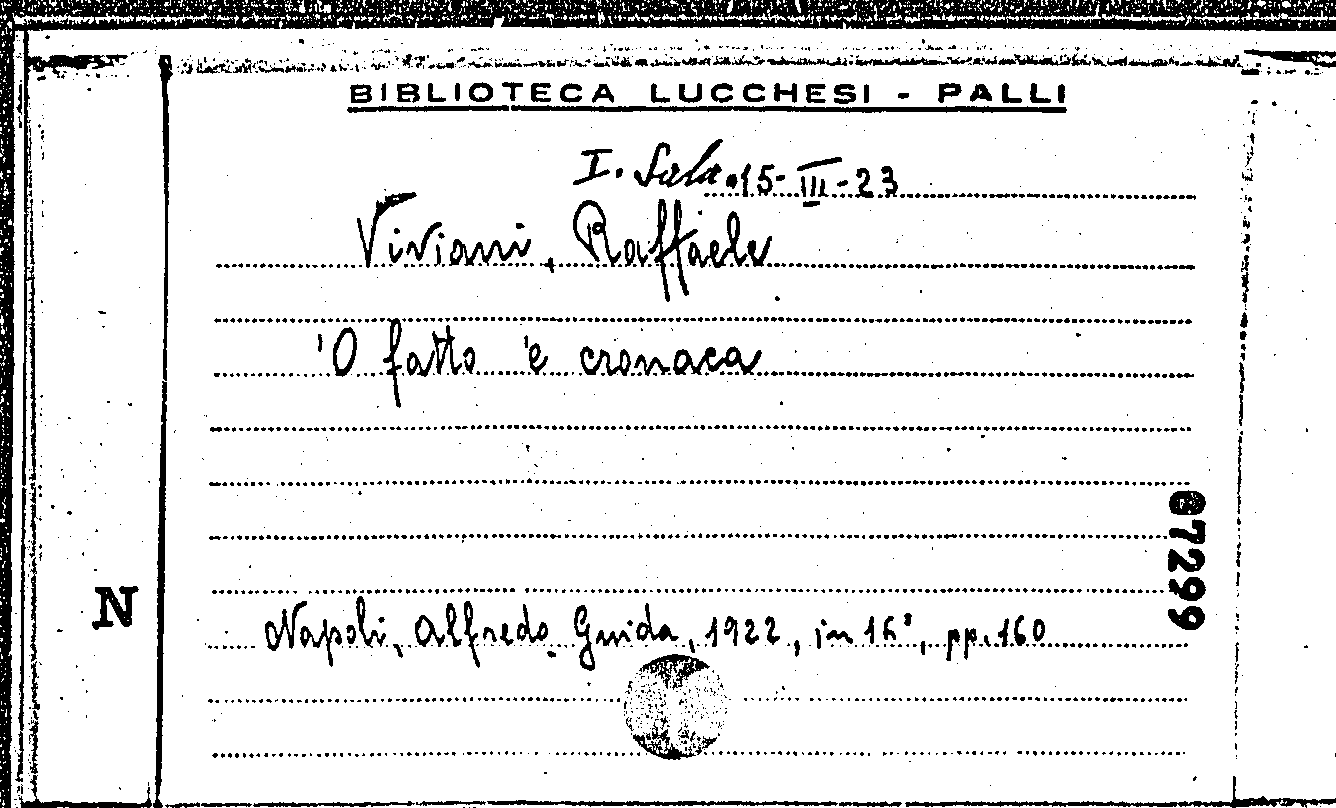 BIBLIOTECA LUCCHESI - PALLI
I. Sala.15-III-23
Viviani, Raffaele
'O fatto 'e cronaca
N
67299
Napoli, Alfredo Guida, 1922, in 16°, pp. 160